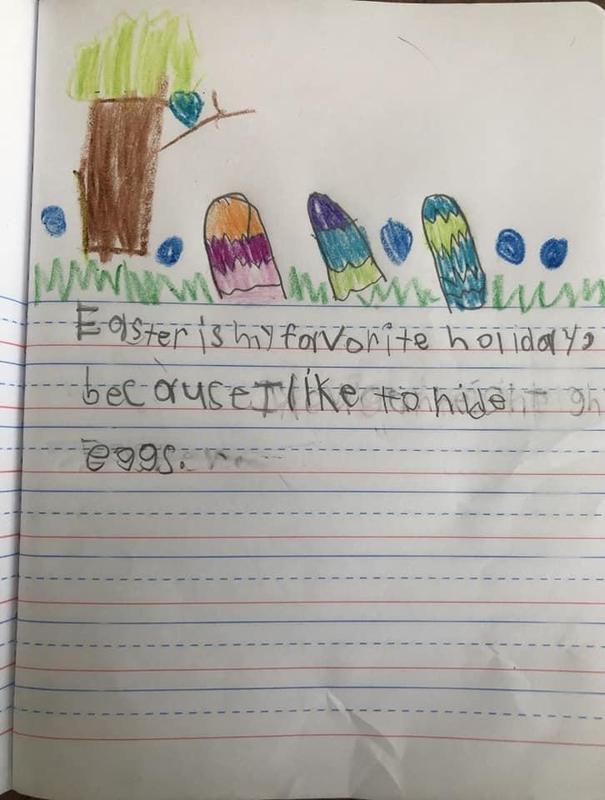 Easter is my favorite holiday,
because I like to hide
eggs.